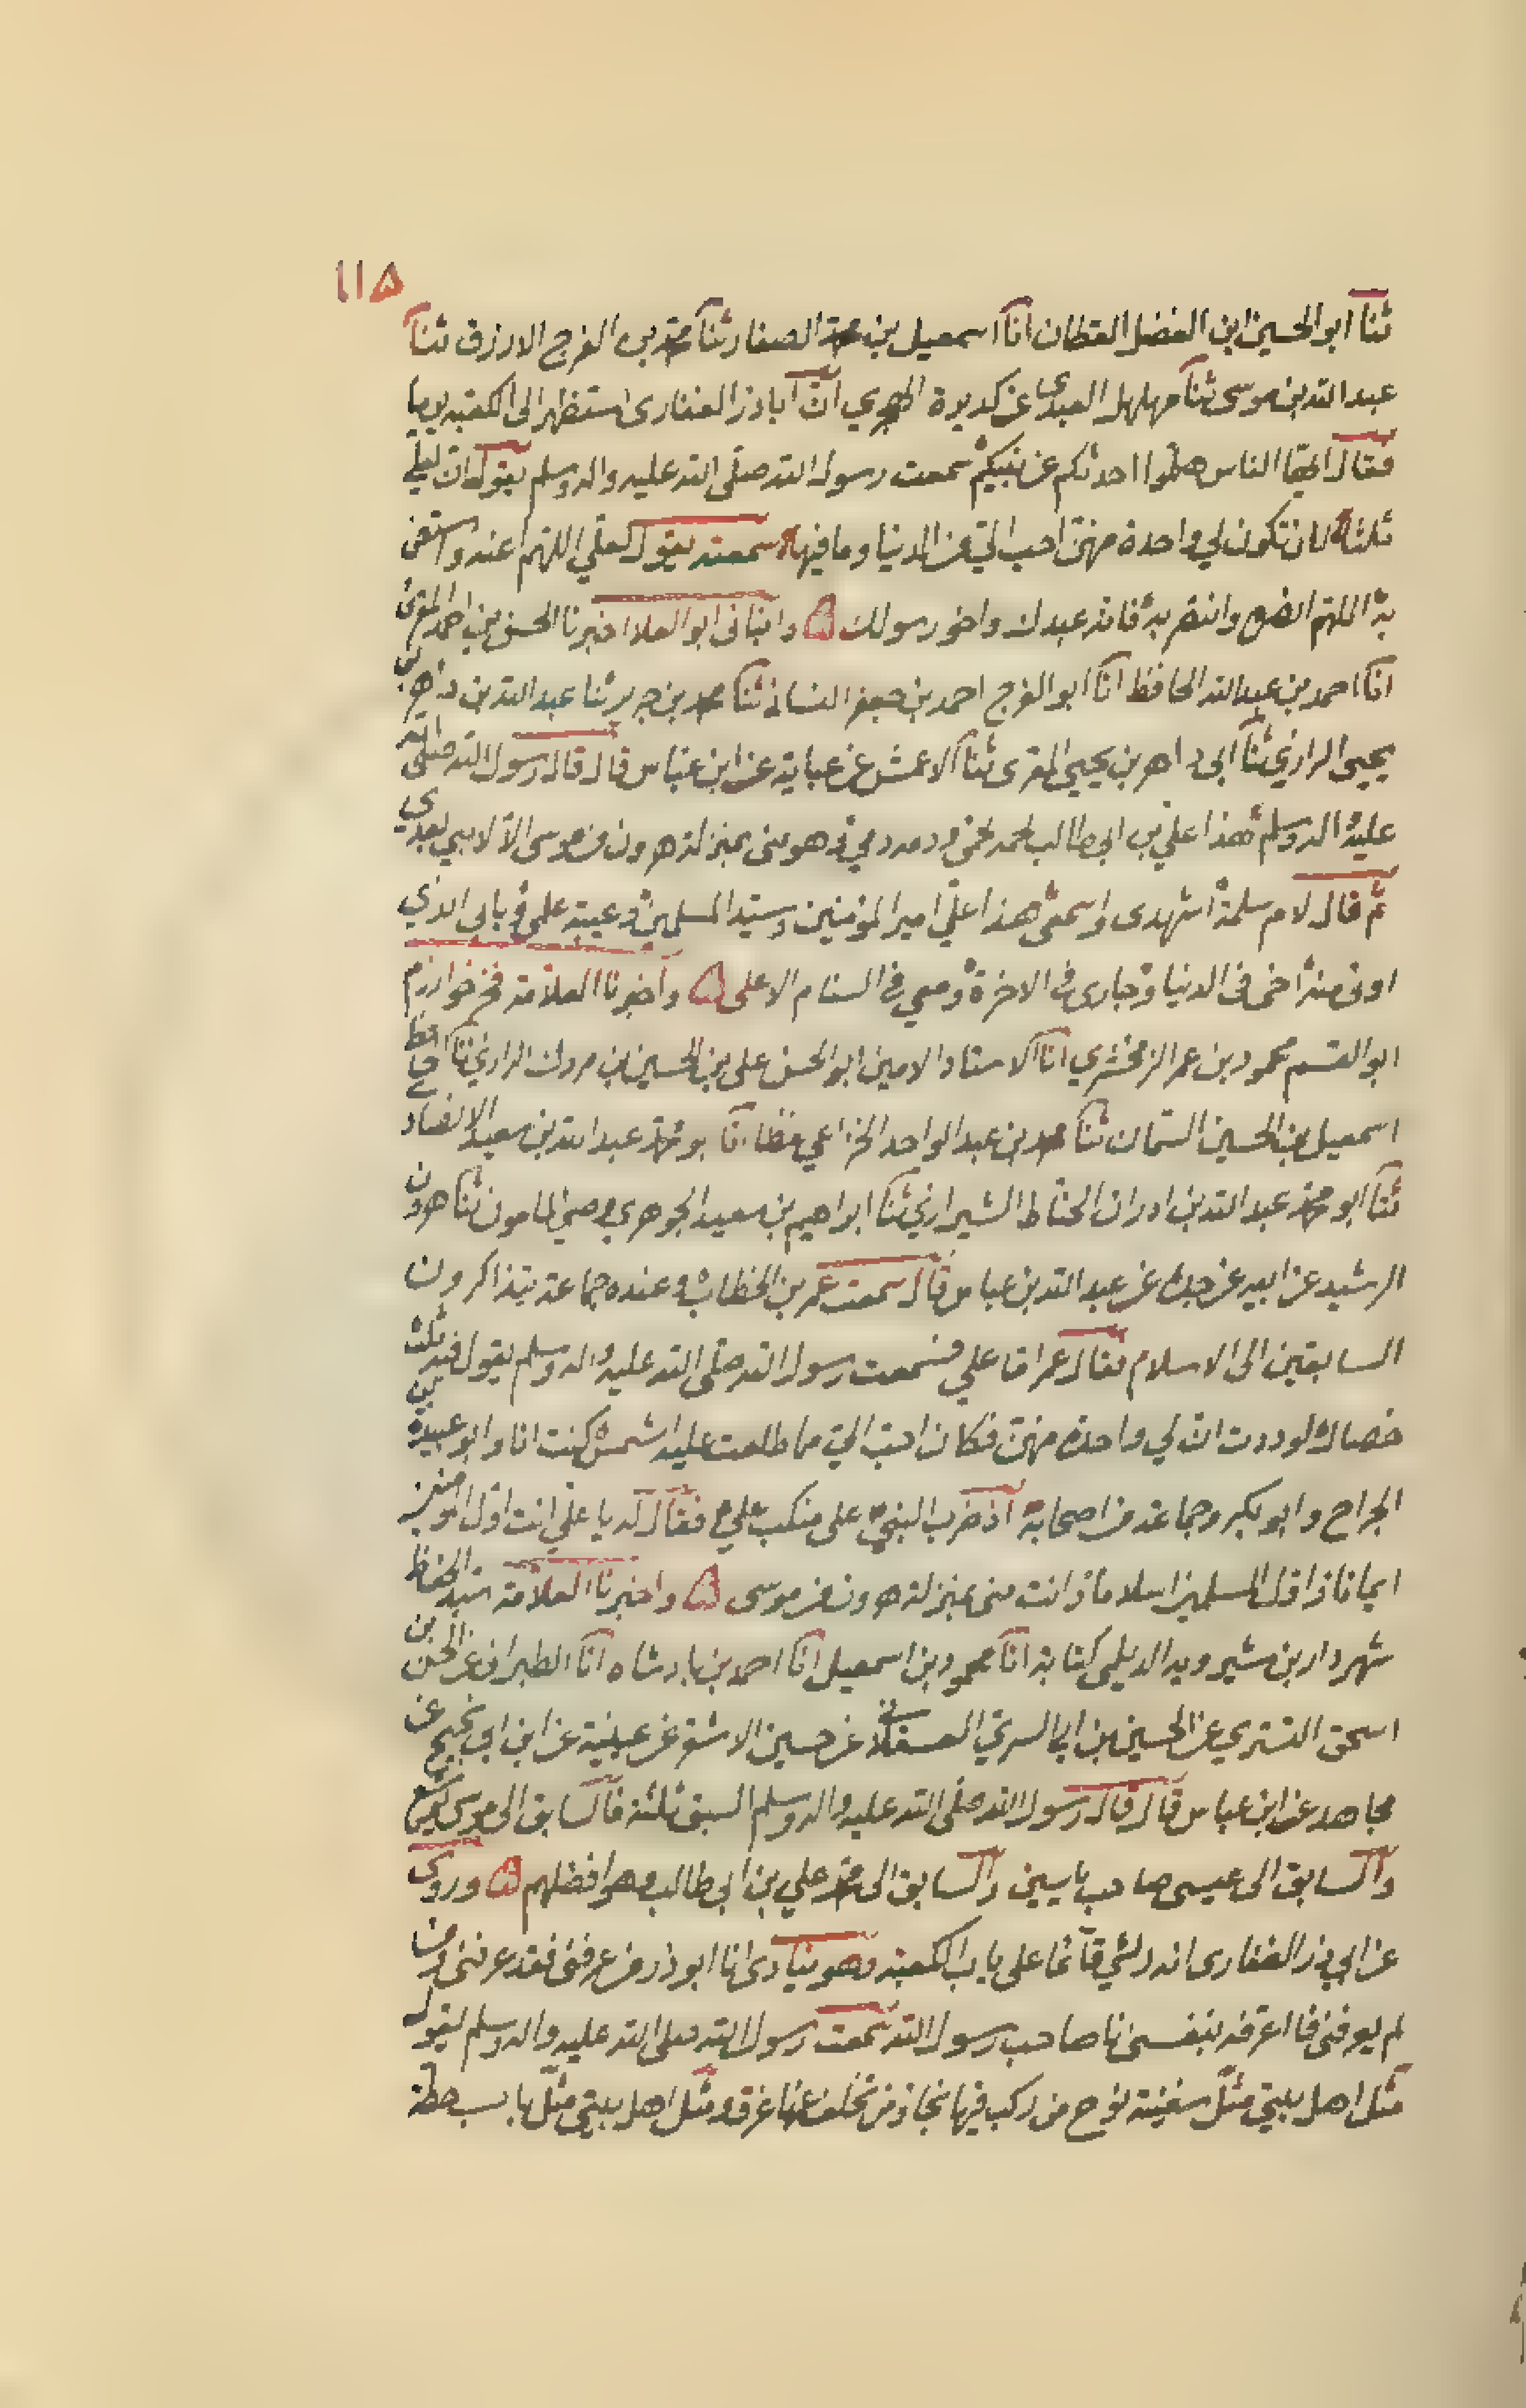 ١١٥
ثنا ابو الحسين ابن الفضل القطان انا اسمعيل بن محمد الصفار ثنا محمد بن الفرج الازرق ثنا
عبد الله بن موسى ثنا مهلهل العبدي عن كديرة الهجري ان اباذر الغفارى استظهر الى الكعبة يوما
فقال ايها الناس هلموا احدثكم عن نبيكم سمعت رسول الله صلى الله عليه واله وسلم يقول لعلي
ثلثة لان تكون لي واحدة منهن احب الي من الدنيا وما فيها سمعته يقول لعلي اللهم اعنه واستعن
به اللهم انصره وانتصر به فانه عبدك واخو رسولك وانبانى ابو العلا اخبرنا الحسن بن احمد المقرئ
انا احمد بن عبد الله الحافظ انا ابو الفرج احمد بن جعفر النسائى ثنا محمد بن جرير ثنا عبد الله بن داهر بن
يحيى الرازي ثنا ابى داهر بن يحيى المقرى ثنا الاعمش عن عباية عن ابن عباس قال قال رسول الله صلى الله
عليه واله وسلم هذا علي بن ابي طالب لحمه لحمى ودمه دمي وهو منى بمنزلة هرون من موسى الا انه لا نبي بعدي
ثم قال لام سلمة اشهدى واسمعى هذا علي امير المؤمنين وسيد المسلمين وعيبة علمى وبابى الذي
اوتى منه اخى فى الدنيا وجارى فى الاخرة ومعي في السنام الاعلى واخبرنا العلامة فخر خوارزم
ابو القسم محمود بن عمر الزمخشري انا الاستاد الامين ابو الحسن على بن الحسين بن مردك الرازي انا الحافظ
اسمعيل بن الحسين السمان ثنا محمد بن عبد الواحد الخزاعي لفظا انا ابو محمد عبد الله بن سعيد الانصار
ثنا ابو محمد عبد الله بن ادران الخياط الشيرازي ثنا ابراهيم بن سعيد الجوهري وصي المامون ثنا هرون
الرشيد عن ابيه عن جده عن عبد الله بن عباس قال سمعت عمر بن الخطاب وعنده جماعة يتذاكرون
السابقين الى الاسلام فقال عمر اما علي فسمعت رسول الله صلى الله عليه واله وسلم يقول فيه ثلث
خصال لوددت ان لي واحدة منهن فكان احب الي مما طلعت عليه الشمس كنت انا وابو عبيدة بن
الجراح وابو بكر وجماعة من اصحابه اذ ضرب النبي على منكب علي فقال له يا علي انت اول المؤمنين
ايمانا واول المسلمين اسلاما وانت منى بمنزلة هرون من موسى واخبرنا العلامة سيد الحفاظ
شهردار بن شيرويه الديلمى كتابة انا محمود بن اسمعيل انا احمد بن بادشاه انا الطبرانى عن الحسين بن
اسحق التستري عن الحسين بن ابي السري العسقلانى عن حسين الاشقر عن عيينة عن ابن ابي نجيح عن
مجاهد عن ابن عباس قال قال رسول الله صلى الله عليه واله وسلم السبق ثلثة فالسابق الى موسى يوشع
والسابق الى عيسى صاحب ياسين والسابق الى محمد علي بن ابي طالب وهو افضلهم وروى
عن ابي ذر الغفارى انه قائما على باب الكعبة وهو ينادى انا ابو ذر من عرفنى فقد عرفنى ومن
لم يعرفنى فانا اعرفه بنفسى انا صاحب رسول الله سمعت رسول الله صلى الله عليه واله وسلم يقول
مثل اهل بيتي مثل سفينة نوح من ركب فيها نجا ومن تخلف عنها غرق ومثل اهل بيتي مثل باب حطة